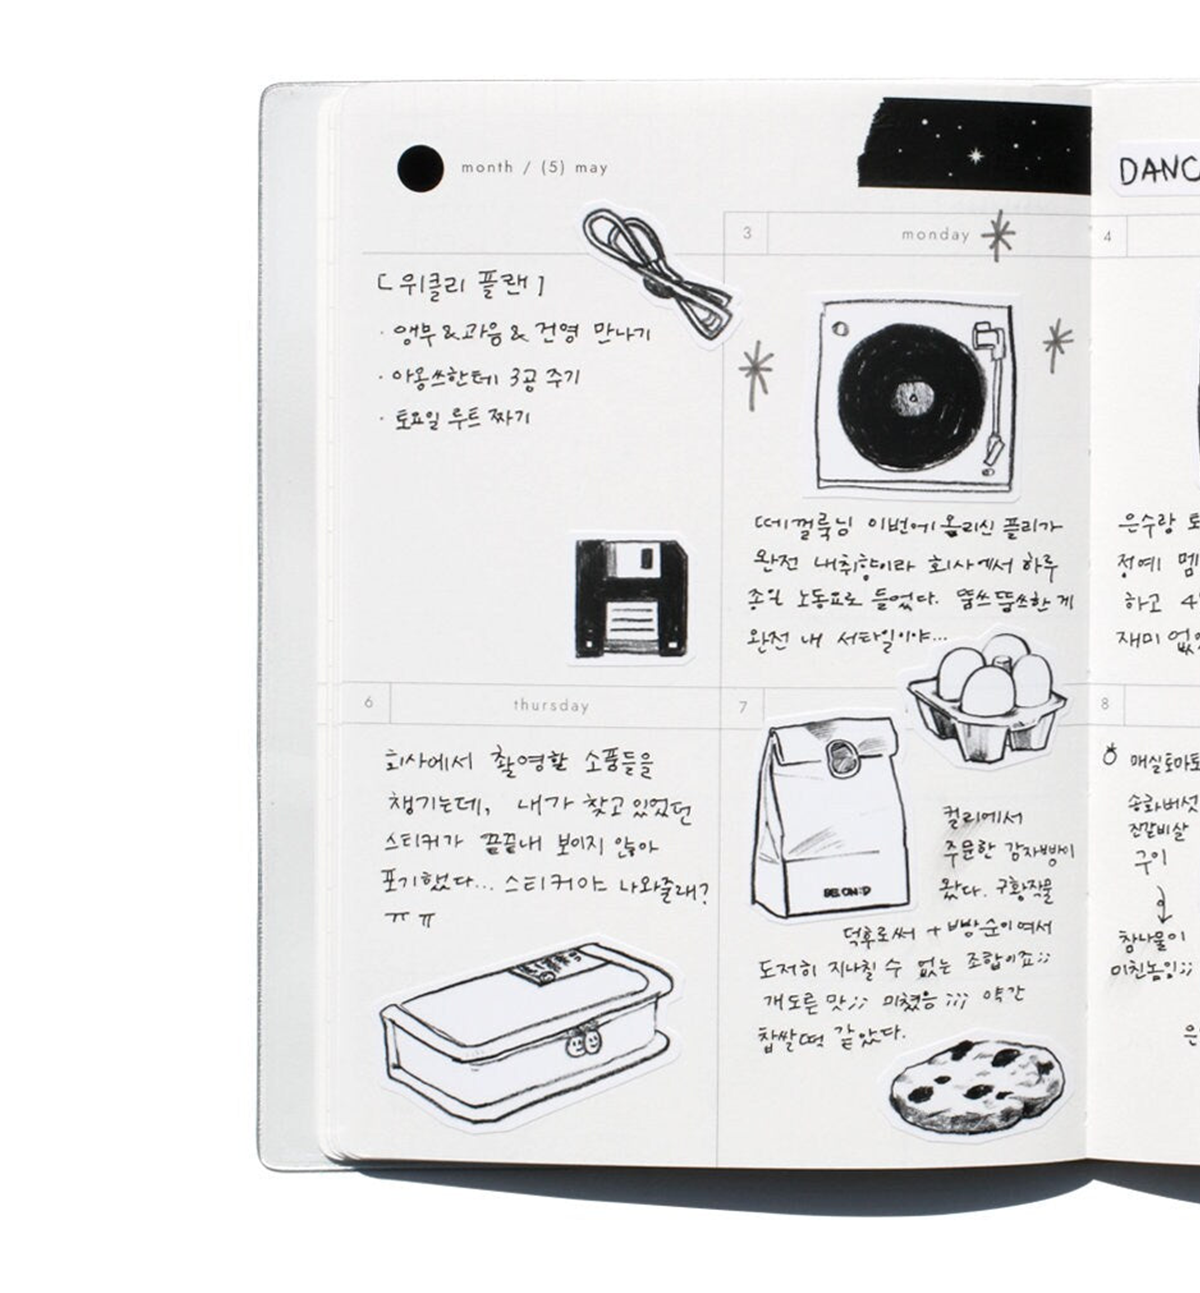 month / (5) may
DANC
[위클리 플랜]
· 앵무&과음& 건영 만나기
· 아옹쓰한테 3공 주기
· 토요일 루트 짜기
3 monday
떼껄룩님 이번에 올리신 플리가
완전 내취향이라 회사에서 하루
종일 노동요로 들었다. 뚬쓰뚬쓰한 게
완전 내 서타일이야...
4
은수랑 토
정예 멤
하고 4
재미 없
6 thursday
회사에서 촬영할 소품들을
챙기는데, 내가 찾고 있었던
스티커가 끝끝내 보이지 않아
포기했다... 스티커야 나와줄래?
ㅠㅠ
7
BEON:D
컬리에서
주문한 감자빵이
왔다. 구황작물
덕후로써 + 빵순이여서
도저히 지나칠 수 없는 조합이죠;;
개도른 맛;; 미쳤음;;; 약간
찹쌀떡 같았다.
8
매실토마토
송화버섯
진갈비살
구이
참나물이
미친놈임;;
은